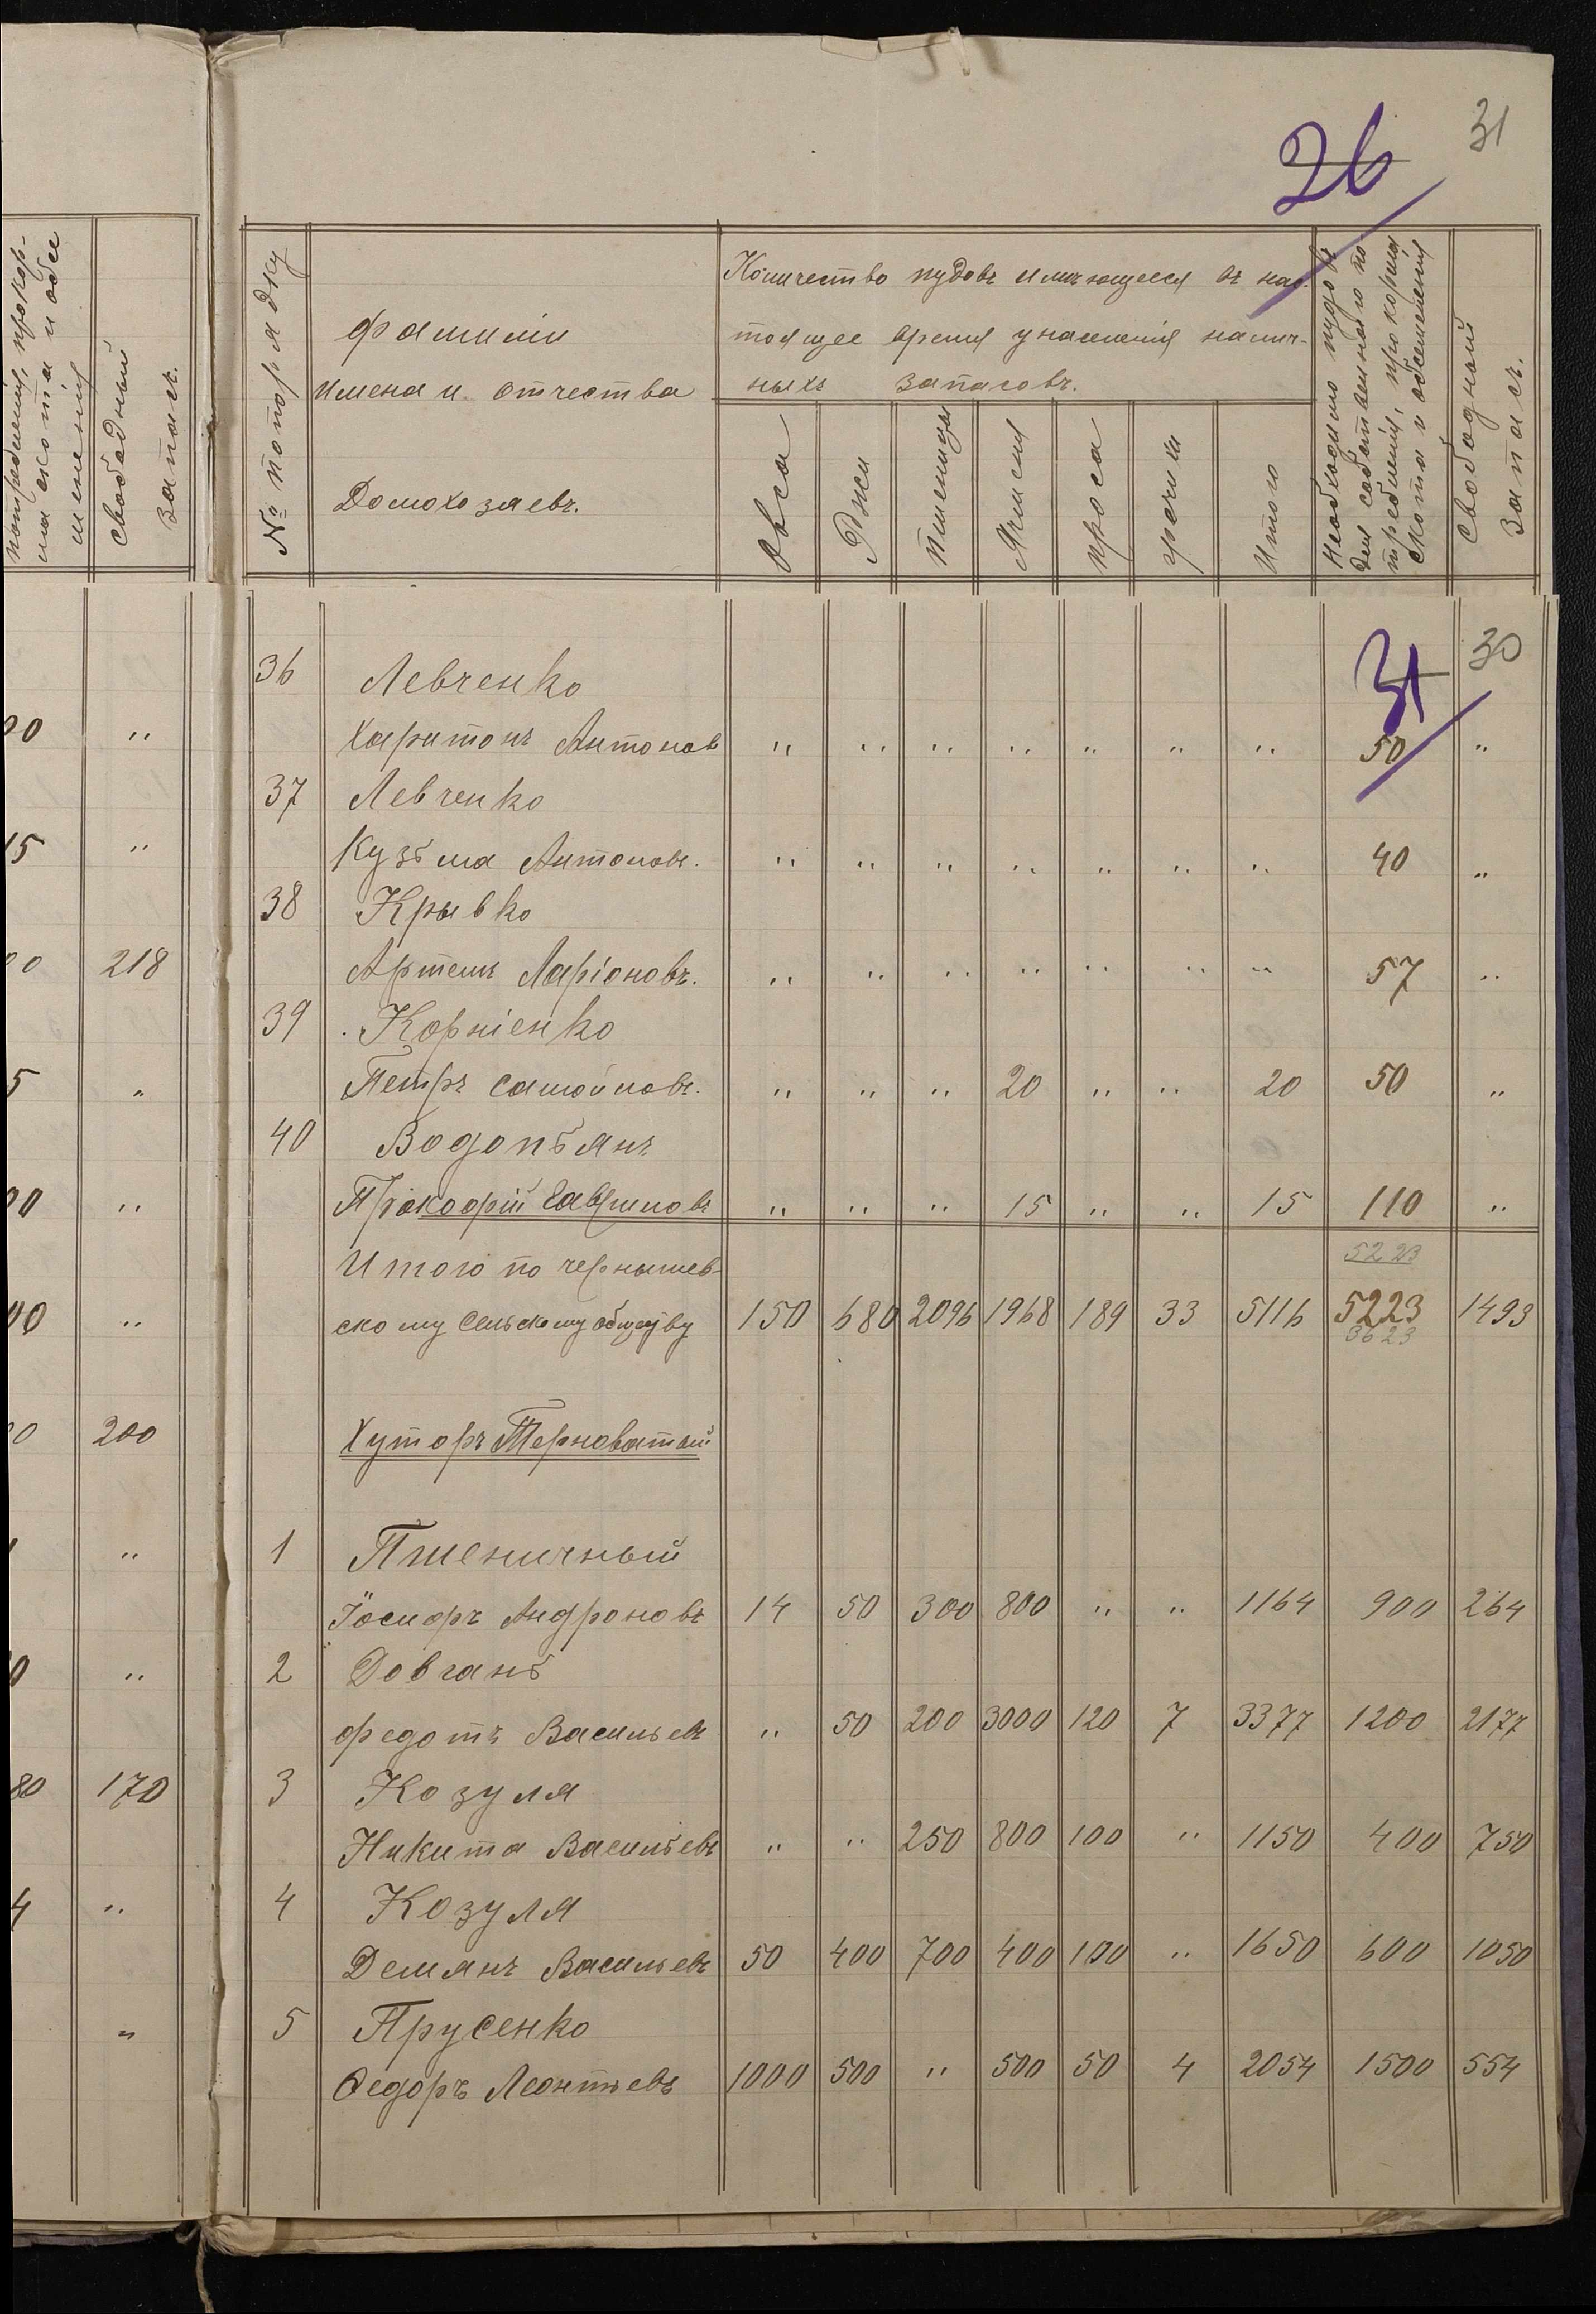 31
26
потребленія, прокор-
ма скота и обсе
мененія
Свободный
запасъ.
№ по порядку
Фамиліи
Имена и Отчества
Домохозяевъ.
Количество пудовъ имѣющееся въ нас-
тоящее время у населенія налич-
ныхъ запасовъ.
Овса
Ржи
Пшеницы
Ячменя
проса
гречихи
Итого
Необходимо пудовъ
для собственнаго по
требленія, прокорма
скота и обсемененія
Свободный
Запасъ.
31 30
36 Левченко
00 " Харитонъ Антонов " " " " " " " 50 "
37 Левченко
15 " Кузьма Антоновъ. " " " " " " " 40 "
38 Крывко
00 218 Артемъ Ларіоновъ. " " " " " " " 57 "
39 Корніенко
5 " Петръ Самойловъ. " " " 20 " " 20 50 "
40 Водопьянъ
00 " Прокофій Гавриловъ " " " 15 " " 15 110 "
Итого по Чернышев- 5223
00 " скому Сельскому обществу 150 680 2096 1968 189 33 5116 5223 1493
3623
0 200 Хуторъ Терноватый
" 1 Пшеничный
Іосифъ Андроновъ 14 50 300 800 " " 1164 900 264
0 " 2 Довгань
Федотъ Васильевъ " 50 200 3000 120 7 3377 1200 2177
80 170 3 Козуля
Никита Васильевъ " " 250 800 100 " 1150 400 750
4 " 4 Козуля
Демянъ Васильевъ 50 400 700 400 100 " 1650 600 1050
" 5 Прусенко
Ѳедоръ Леонтьевъ 1000 500 " 500 50 4 2054 1500 554